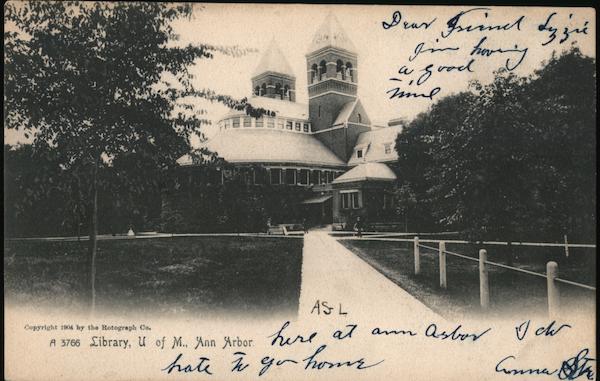 Dear Friend Lizzie
I'm having
a good
time
ASL
Copyright 1904 by the Rotograph Co.
A 3766 Library, U of M., Ann Arbor.
here at ann Arbor I dw
hate to go home
Anna